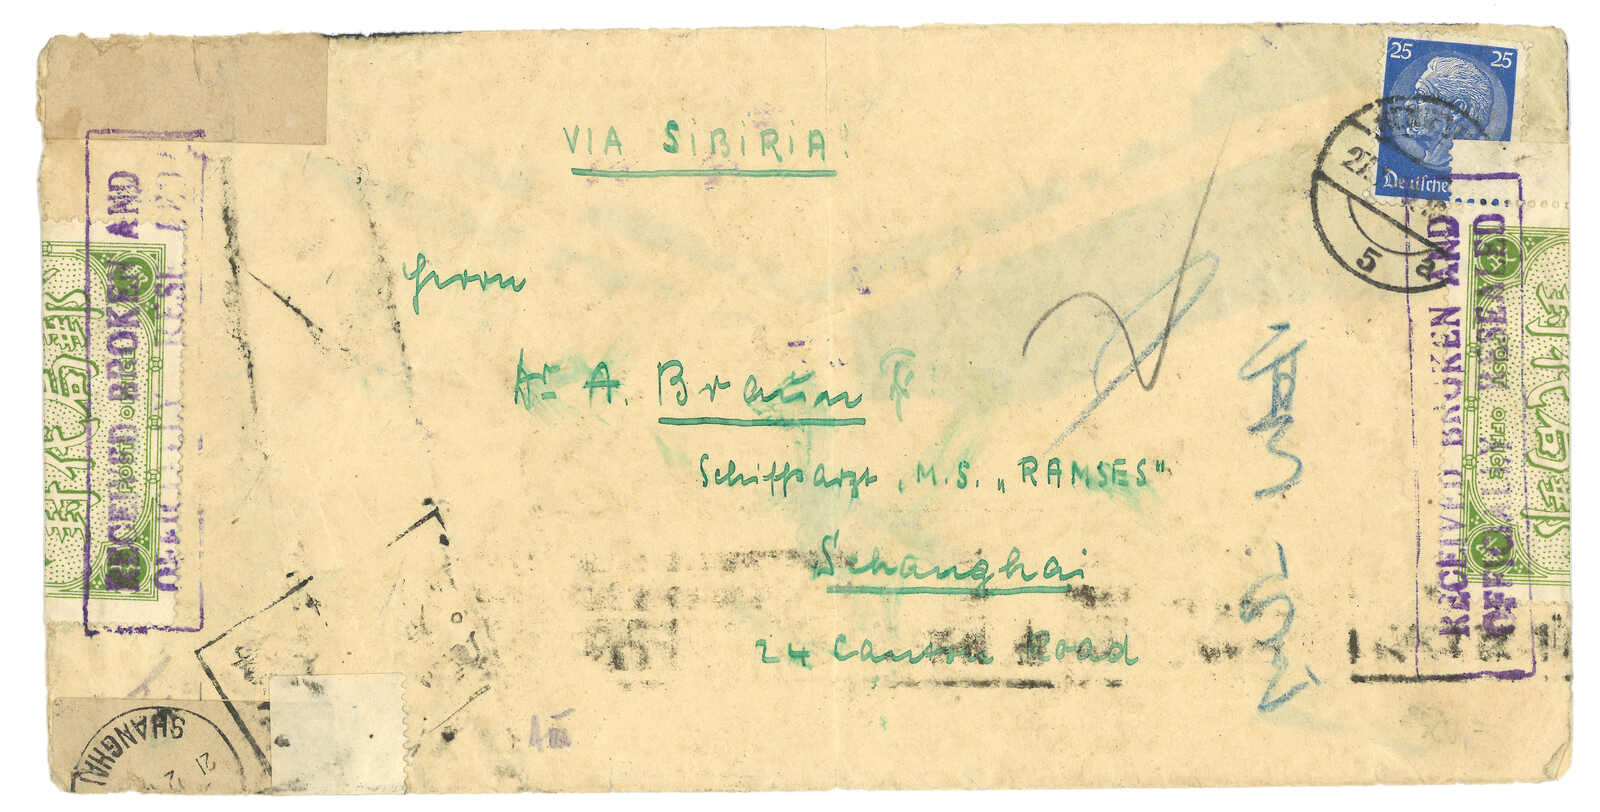 VIA SIBIRIA!
Herrn
Dr A. Braun
Schiffsarzt, M.S. „RAMSES“
Schanghai
24 Canton Road
25 25
Deutsche
27.
5 a
RECEIVED BROKEN AND
OFFICIALLY RESEALED
POST OFFICE
RECEIVED BROKEN AND
OFFICIALLY RESEALED
POST OFFICE
SHANGHAI
21 12